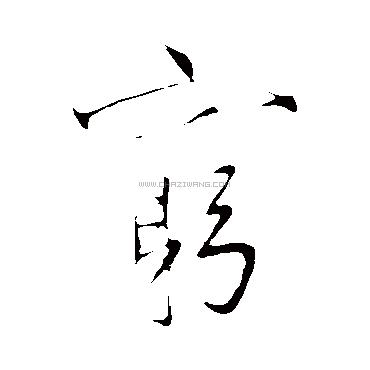 窮
WWW.CHAZIWANG.COM